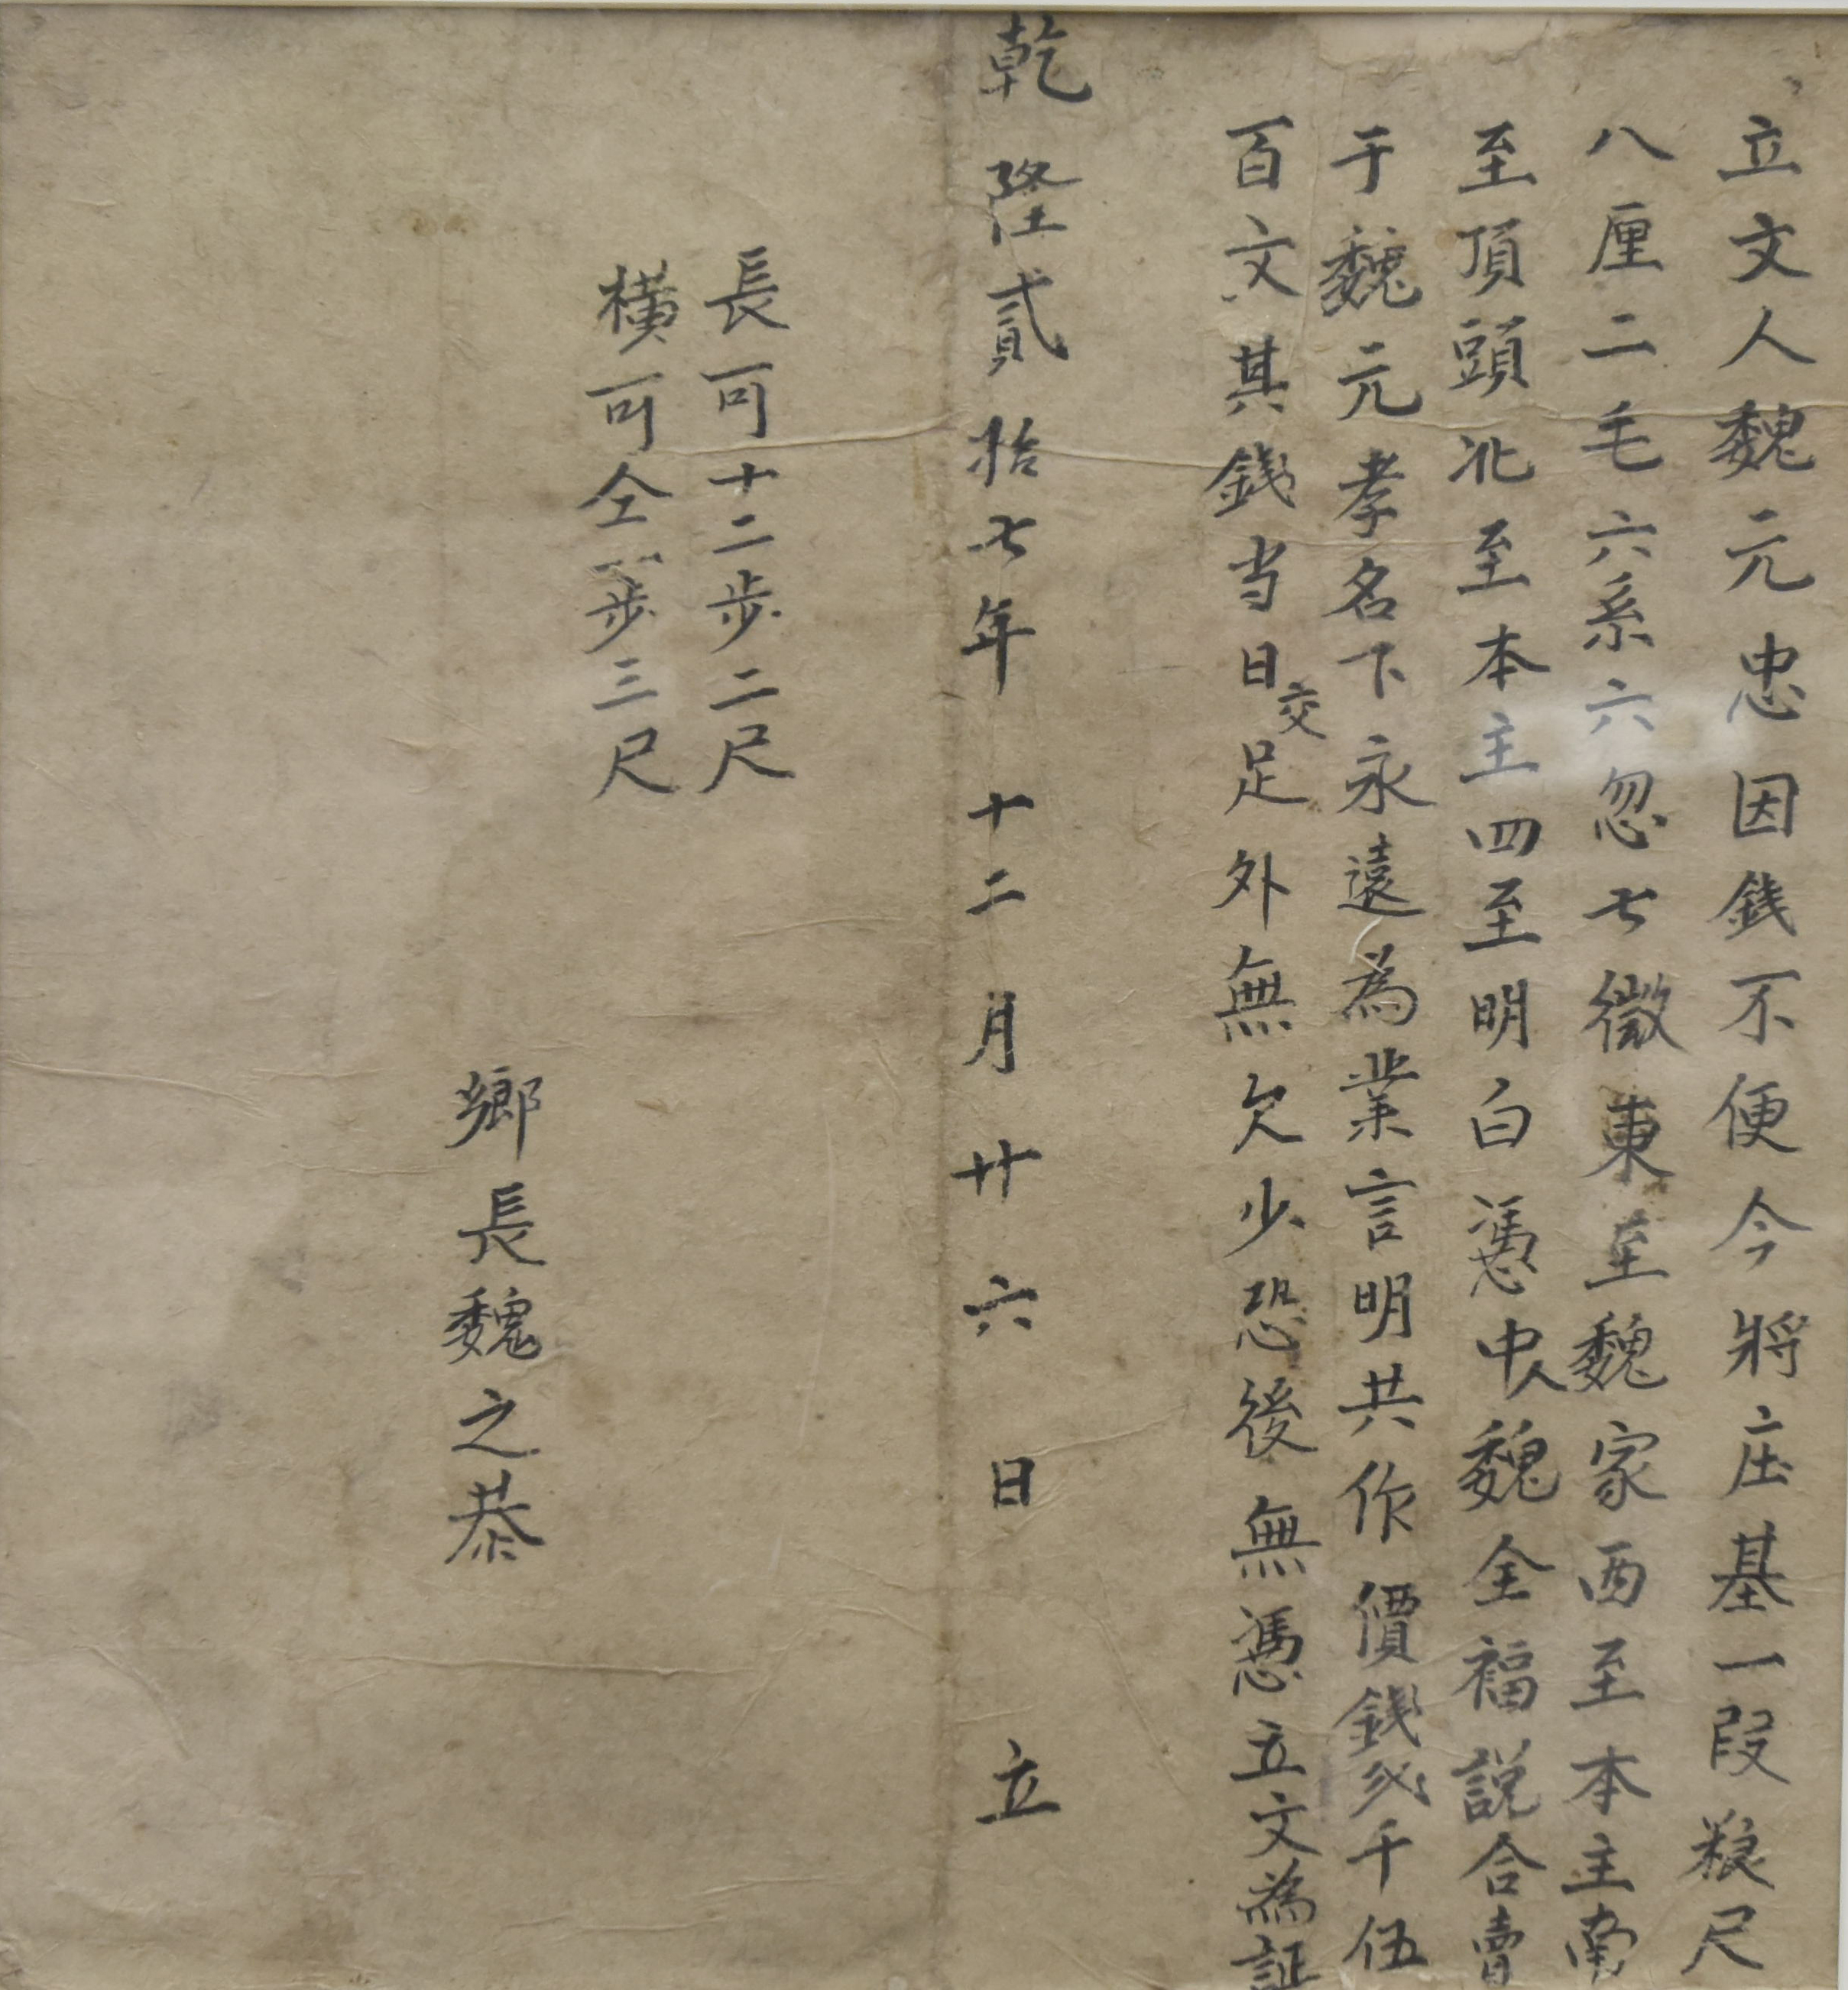 立文人魏元忠因錢不便今將庄基一段粮尺
八厘二毛六系六忽七微東至魏家西至本主南
至頂頭北至本主四至明白憑中人魏全福説合賣
于魏元孝名下永遠為業言明共作價錢弍千伍
百文其錢当日交足外無欠少恐後無憑立文為証
乾隆貳拾七年 十二月廿六日 立
長可十二步二尺
橫可仝步三尺
鄉長魏之恭